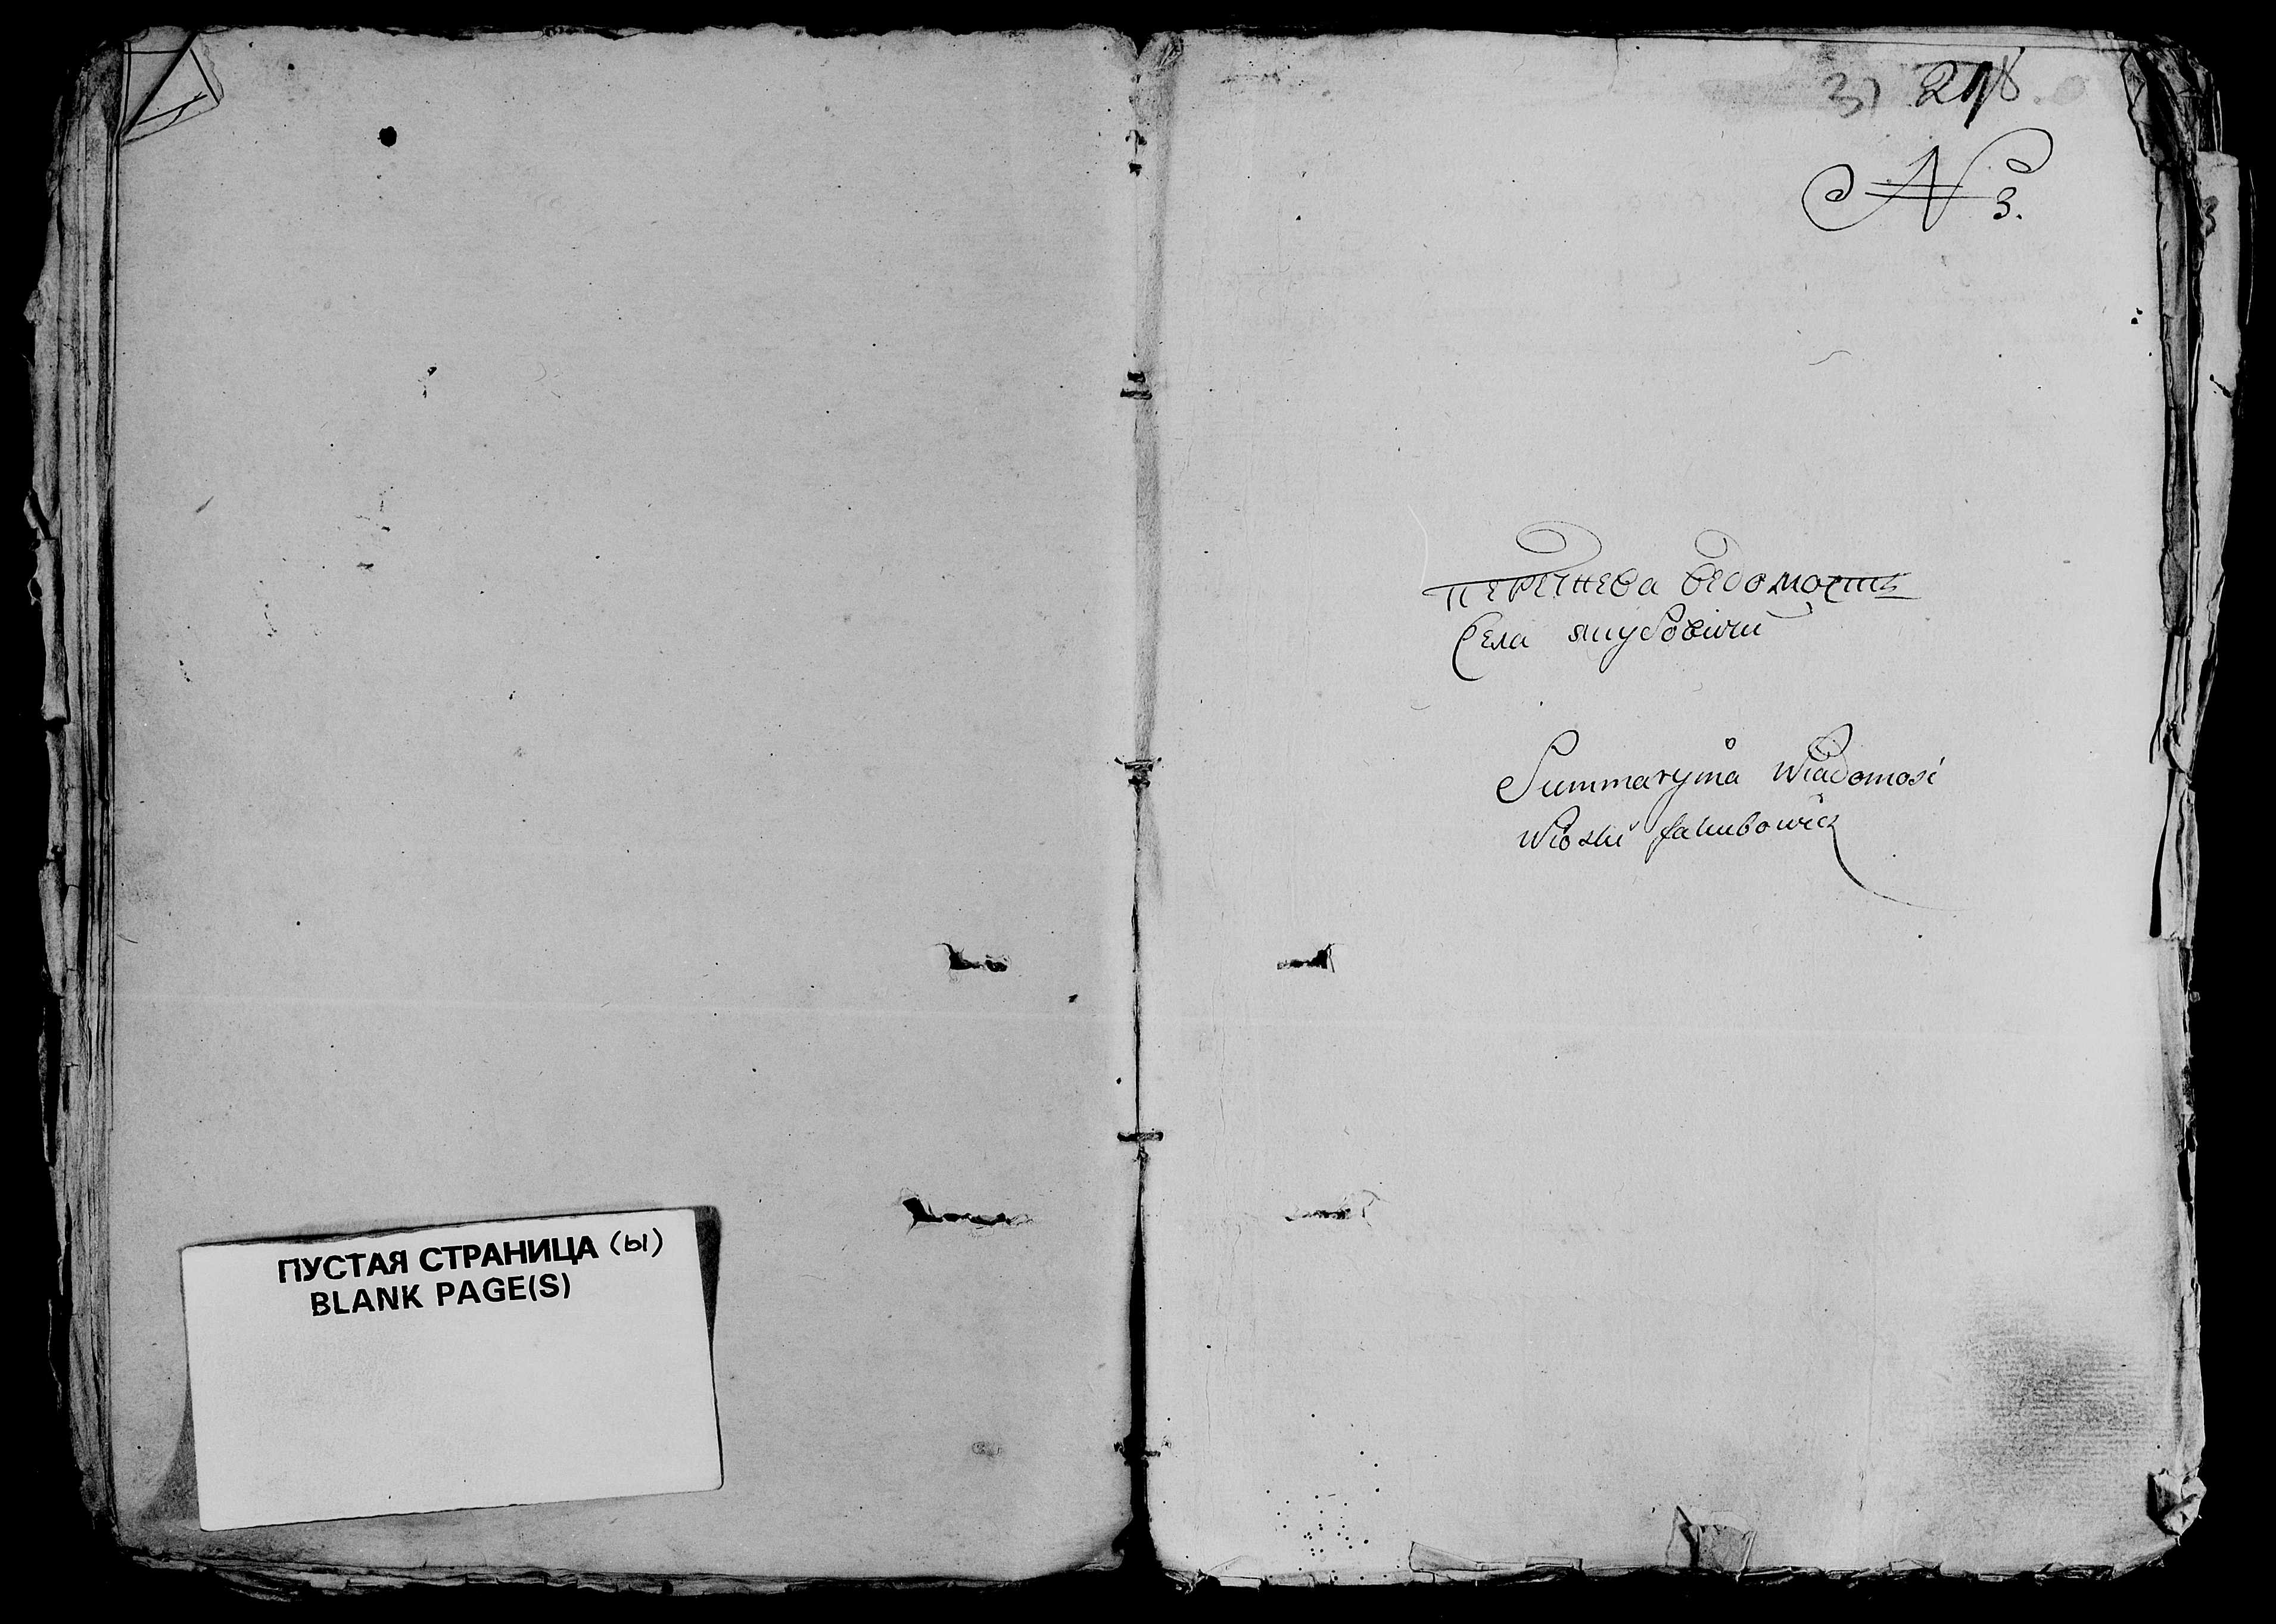 ПУСТАЯ СТРАНИЦА (ы)
BLANK PAGE(S)
N 3.
перечнева ведомость
Села якубовичи
Summaryina Wiadomosć
Wioski Jakubowicz